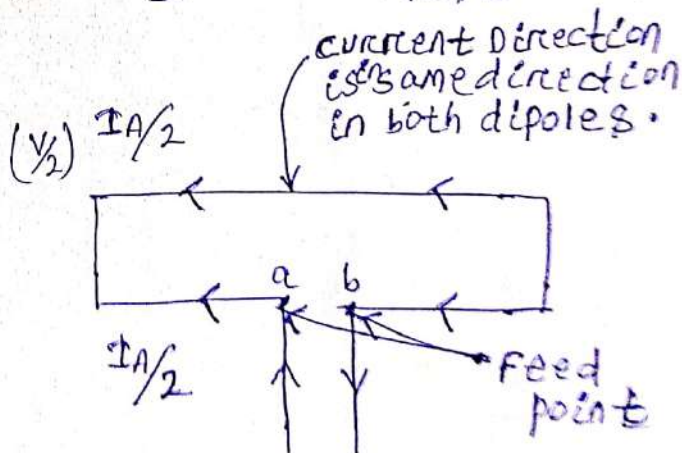 current Direction
is in same direction
in both dipoles.
(V/2) IA/2
a b
IA/2
Feed
point